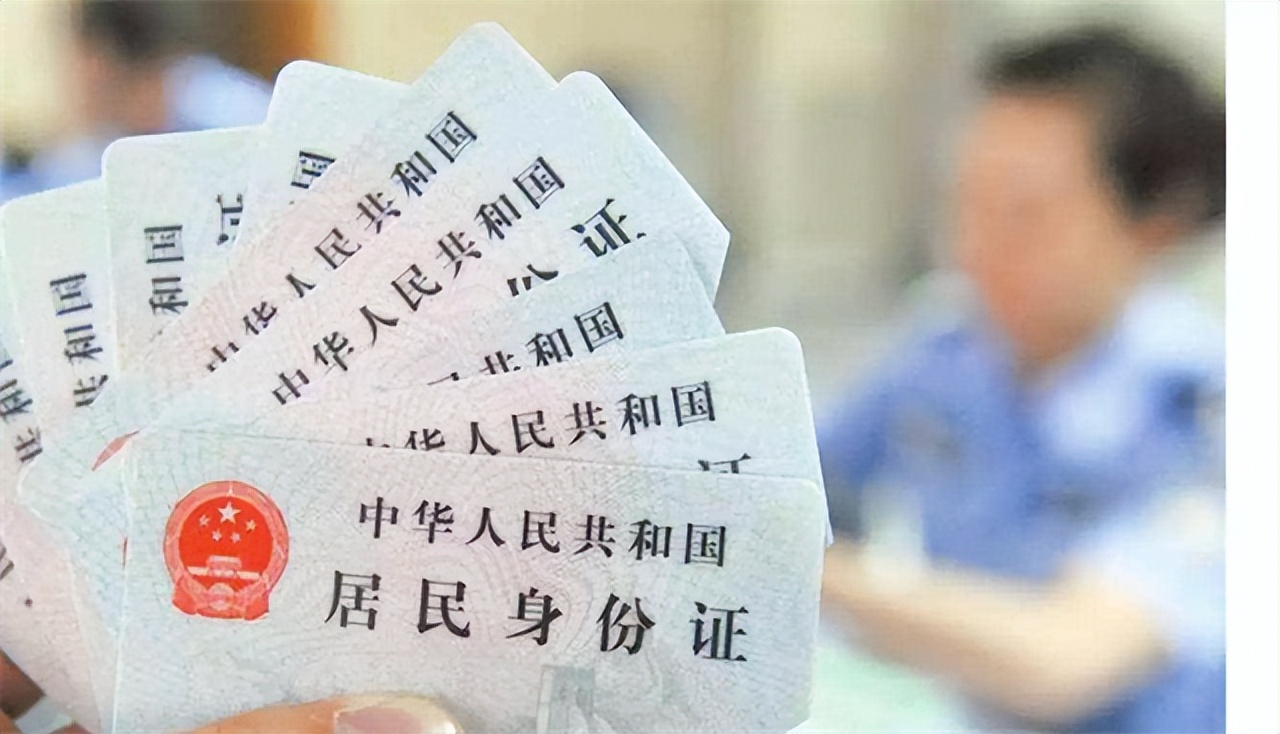 共和
共和国
和国
国
中华人民共和国
中华人民共和国
份证
共和国
中华人民共和国
证
中华人民共和国
居民身份证